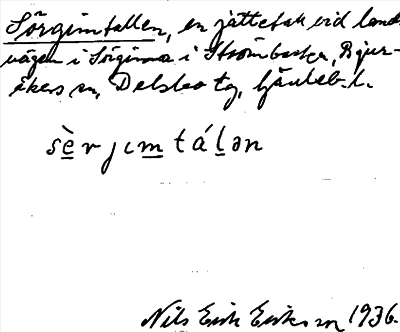 Sörgimtallen, en jättetall vid lands-
vägen i Sörgimma i Strömbacka, Bjur-
åkers sn,
sèrjımtálən
Nils Erik Eriksson 1936.